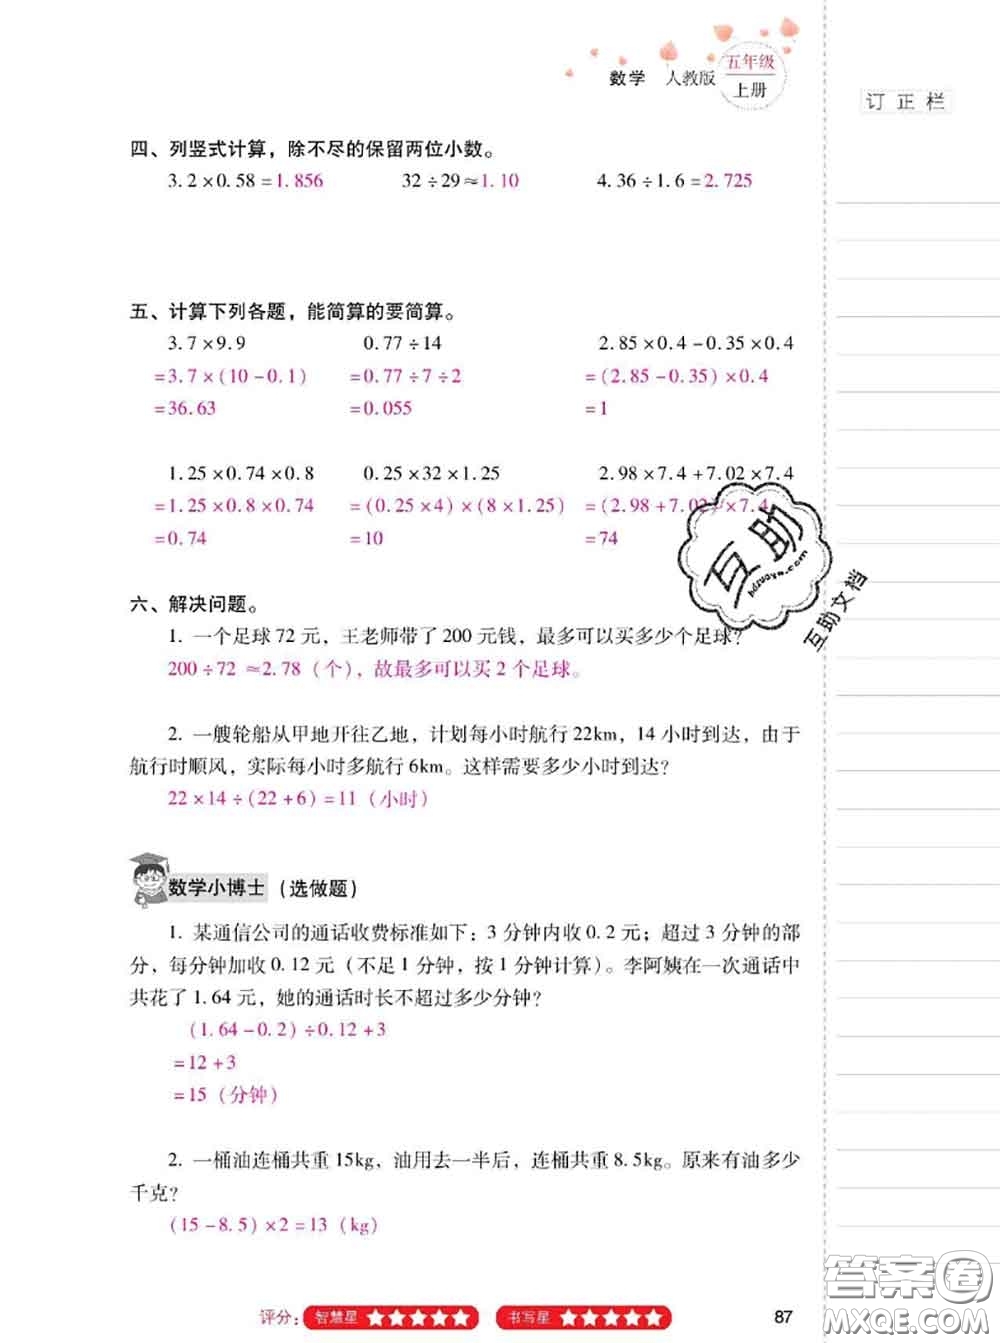 数学 人教版 五年级 上册
订正栏
四、列竖式计算，除不尽的保留两位小数。
3.2×0.58=1.856 32÷29≈1.10 4.36÷1.6=2.725
五、计算下列各题，能简算的要简算。
3.7×9.9 0.77÷14 2.85×0.4-0.35×0.4
=3.7×(10-0.1) =0.77÷7÷2 =(2.85-0.35)×0.4
=36.63 =0.055 =1
1.25×0.74×0.8 0.25×32×1.25 2.98×7.4+7.02×7.4
=1.25×0.8×0.74 =(0.25×4)×(8×1.25) =(2.98+7.02)×7.4
=0.74 =10 =74
六、解决问题。
1. 一个足球72元，王老师带了200元钱，最多可以买多少个足球？
200÷72≈2.78（个），故最多可以买2个足球。
2. 一艘轮船从甲地开往乙地，计划每小时航行22km，14小时到达，由于
航行时顺风，实际每小时多航行6km。这样需要多少小时到达？
22×14÷(22+6)=11（小时）
数学小博士（选做题）
1. 某通信公司的通话收费标准如下：3分钟内收0.2元；超过3分钟的部
分，每分钟加收0.12元（不足1分钟，按1分钟计算）。李阿姨在一次通话中
共花了1.64元，她的通话时长不超过多少分钟？
(1.64-0.2)÷0.12+3
=12+3
=15（分钟）
2. 一桶油连桶共重15kg，油用去一半后，连桶共重8.5kg。原来有油多少
千克？
(15-8.5)×2=13（kg）
评分：智慧星★★★★★ 书写星★★★★★
87
互助
互助文档
答案圈
MXQE.COM